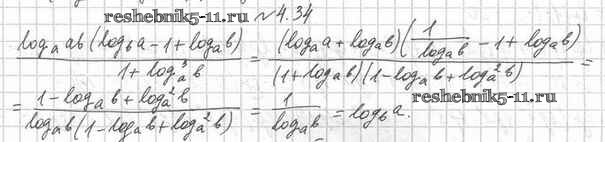 reshebnik5-11.ru №4.34
\frac{log_a ab (log_b a - 1 + log_a b)}{1 + log_a^3 b} = \frac{(log_a a + log_a b)(\frac{1}{log_a b} - 1 + log_a b)}{(1 + log_a b)(1 - log_a b + log_a^2 b)} =
= \frac{1 - log_a b + log_a^2 b}{log_a b (1 - log_a b + log_a^2 b)} = \frac{1}{log_a b} = log_b a.
reshebnik5-11.ru